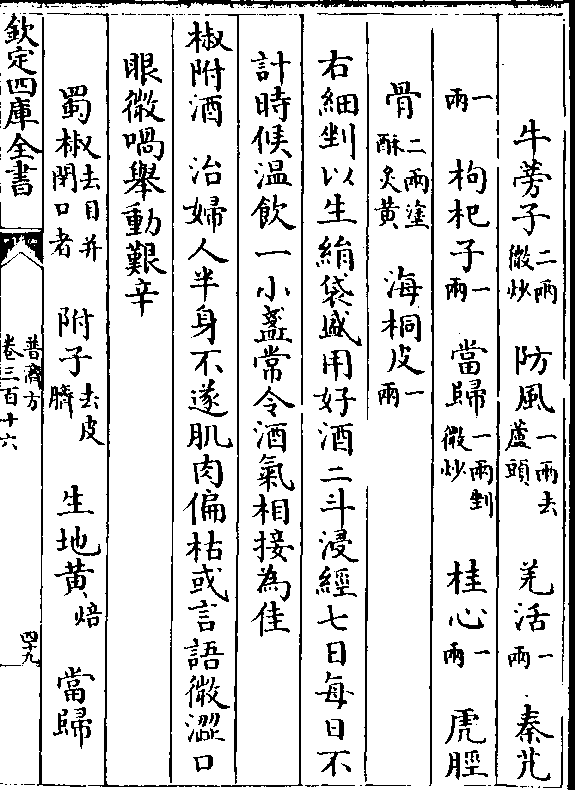 牛蒡子二兩微炒 防風一兩去蘆頭 羌活一兩 秦艽
一兩 枸杞子一兩 當歸一兩剉微炒 桂心一兩 虎脛
骨二兩塗酥炙黄 海桐皮一兩
右細剉以生絹袋盛用好酒二斗浸經七日每日不
計時候温飲一小盞常令酒氣相接為佳
椒附酒 治婦人半身不遂肌肉偏枯或言語微澀口
眼微喎舉動艱辛
蜀椒去目并閉口者 附子去皮臍 生地黄焙 當歸
欽定四庫全書
普濟方
卷三百十六
四十九